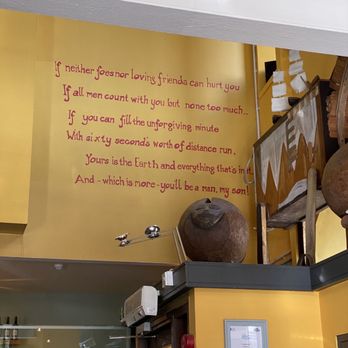 If neither foes nor loving friends can hurt you
If all men count with you but none too much..
If you can fill the unforgiving minute
With sixty second's worth of distance run,
Yours is the Earth and everything that's in it
And - which is more - you'll be a man, my son!